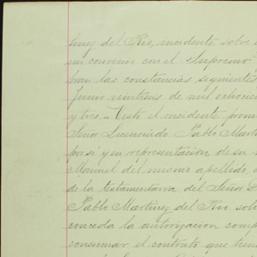 tinez del Rio, incidente sobre
un convenio con el Supremo
por las constancias siguientes
Junio veintitres de mil ochocien
y tres. Visto el incidente prom
Señor Licenciado Pablo Mart
por si y en representacion de su
Manuel del mismo apellido,
de la testamentaria del Señor D
Pablo Martinez del Rio sob
conceda la autorizacion comp
consumar el contrato que tien